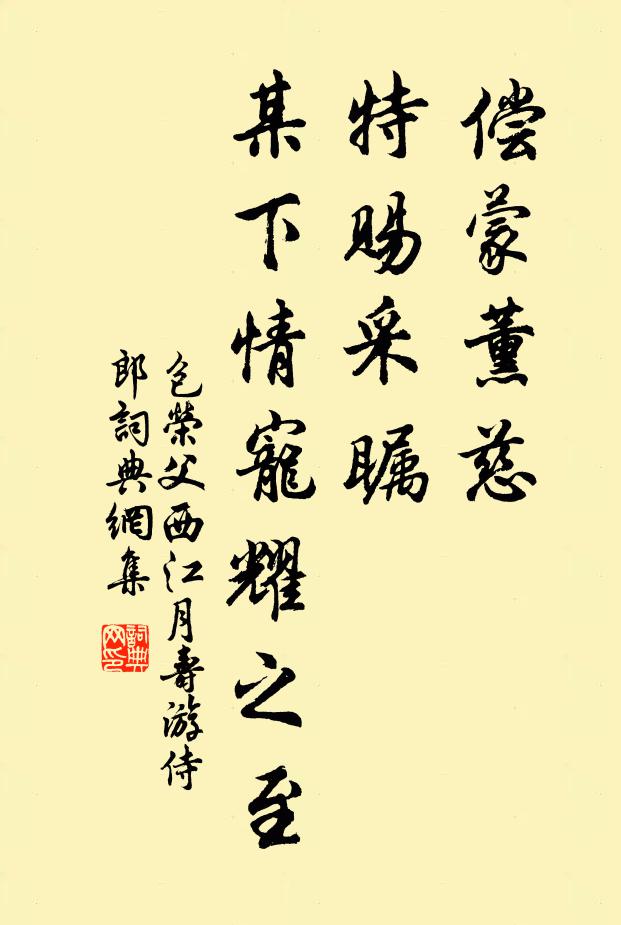 偿蒙薰慈
特赐采瞩
某下情寵耀之至
包榮父西江月壽游侍
郎詞典網集
詞典网印